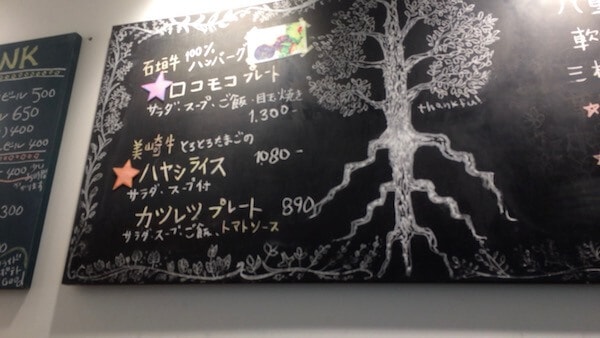 NK
ビール 500
ル 650
) 400
ビール 400
400
300
石垣牛 100%
ハンバーグ
ロコモコ プレート
サラダ・スープ・ご飯・目玉焼き
1,300-
美崎牛 とろとろたまごの
ハヤシライス 1080-
サラダ・スープ付
カツレツ プレート 890
サラダ・スープ・ご飯、トマトソース
thankful
軟
三枚